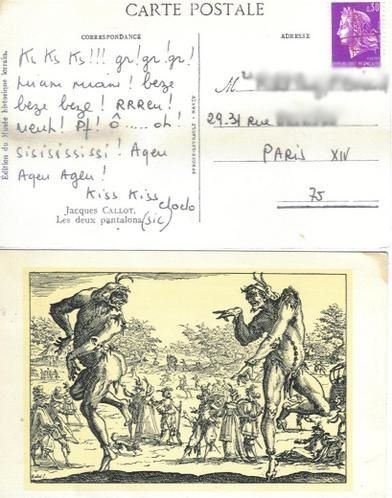 CARTE POSTALE
CORRESPONDANCE
ADRESSE
0,30
Ks Ks Ks!!! gr! gr! gr!
miam miam! beze
beze beze! RRReu!
meuh! Pf! Ô.....oh!
sisisississi! Ageu
Ageu Ageu!
Kiss Kiss
Clodo
Jacques CALLOT,
Les deux pantalons (sic)
Édition du Musée historique lorrain.
M
29-31 Rue
PARIS XIV
75